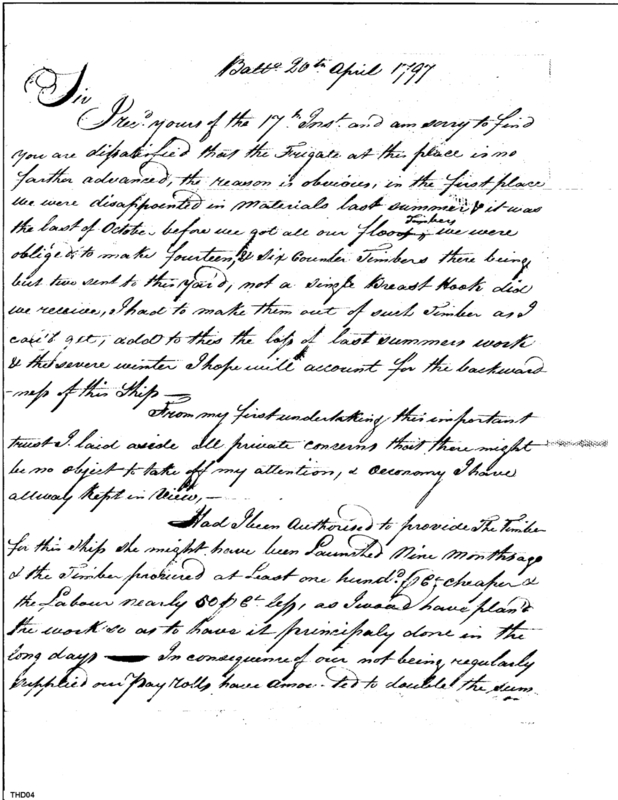 Balto 20th April 1797
Sir
I recd. yours of the 17th. Inst. and am sorry to find
you are dissatisfied that the Frigate at this place is no
farther advanced, the reason is obvious, in the first place
we were disappointed in Materials last summer & it was
the last of October before we got all our floor Timbers, we were
obliged to make fourteen, & Six Counter Timbers there being
but two sent to this Yard, not a Single Breast Hook did
we receive, I had to make them out of such Timber as I
could get, add to this the loss of last summers work
& the severe winter I hope will account for the backward
-ness of this Ship —
From my first undertaking this important
trust I laid aside all private concerns that there might
be no object to take off my attention, & Oeconomy I have
allway kept in View, —
Had I been Authorised to provide The Timber
for this Ship she might have been Launched Nine Months ago
& the Timber procured at Least one hund.d p Ct. cheaper &
the Labour nearly 50 p Ct. less, as I woud have plan'd
the work so as to have it principaly done in the
long days — In consequence of our not being regularly
supplied our Pay Rolls have amou ted to double the sum
THD04